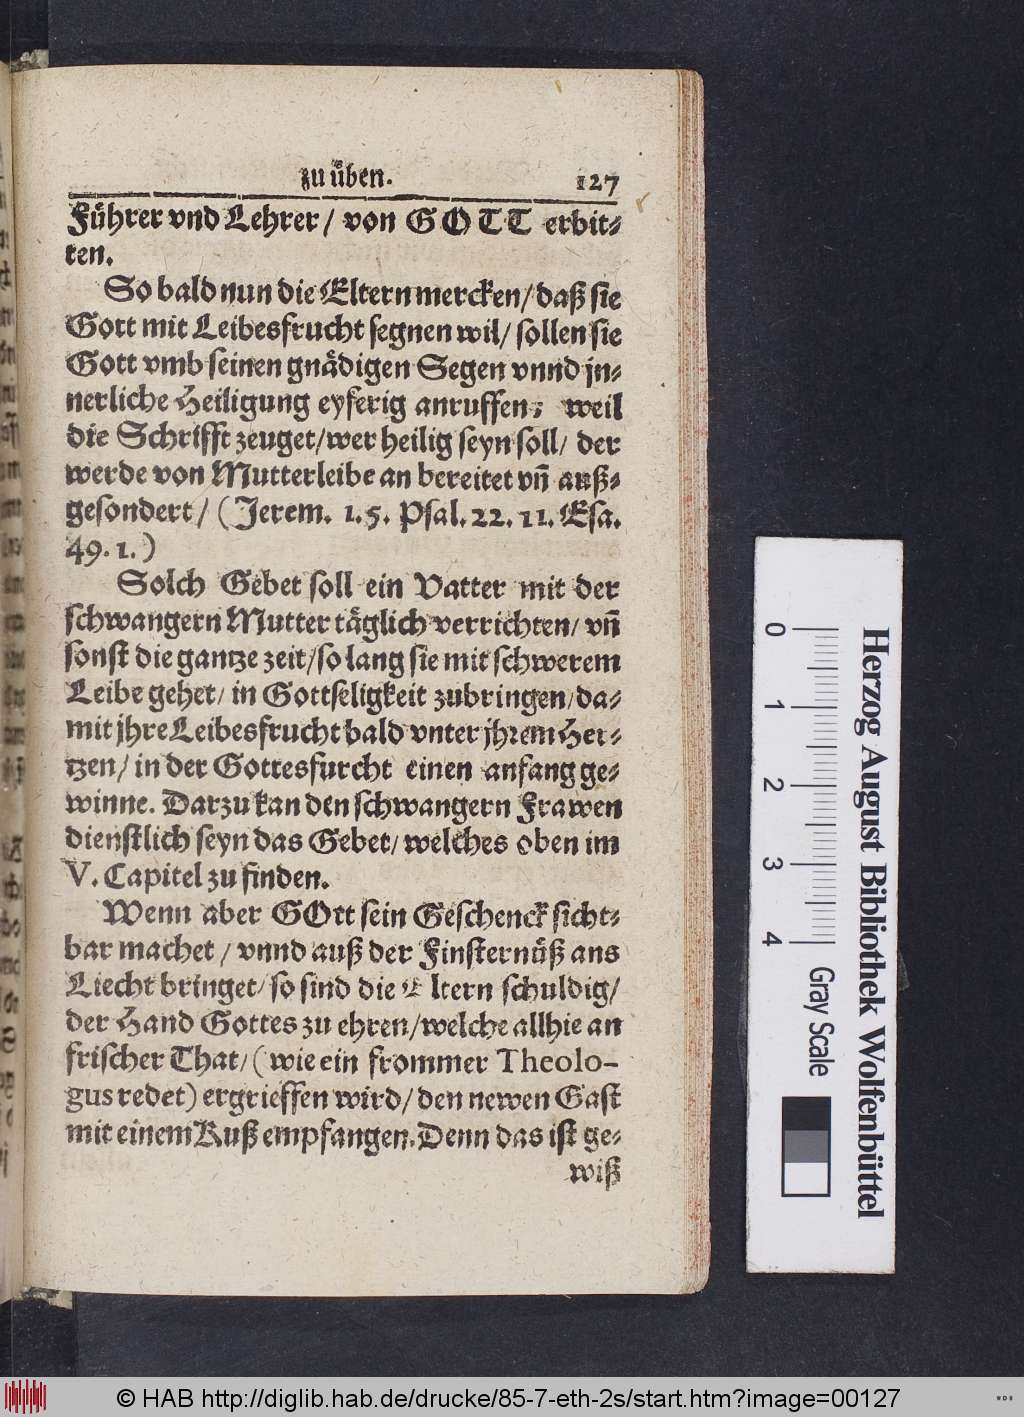 zu üben. 127
Führer vnd Lehrer / von GOTT erbit⸗
ten.
So bald nun die Eltern mercken / daß sie
Gott mit Leibesfrucht segnen wil / sollen sie
Gott vmb seinen gnädigen Segen vnnd jn⸗
nerliche Heiligung eyferig anruffen; weil
die Schrifft zeuget / wer heilig seyn soll / der
werde von Mutterleibe an bereitet vñ auß⸗
gesondert / (Jerem. 1. 5. Psal. 22. 11. Esa.
49. 1.)
Solch Gebet soll ein Vatter mit der
schwangern Mutter täglich verrichten / vñ
sonst die gantze zeit / so lang sie mit schwerem
Leibe gehet / in Gottseligkeit zubringen / da⸗
mit jhre Leibesfrucht bald vnter jhrem Her⸗
tzen / in der Gottesfurcht einen anfang ge⸗
winne. Darzu kan den schwangern Frawen
dienstlich seyn das Gebet / welches oben im
V. Capitel zu finden.
Wenn aber GOtt sein Geschenck sicht⸗
bar machet / vnnd auß der Finsternüß ans
Liecht bringet / so sind die Eltern schuldig /
der Hand Gottes zu ehren / welche allhie an
frischer That / (wie ein frommer Theolo-
gus redet) ergrieffen wird / den newen Gast
mit einem Kuß empfangen. Denn das ist ge⸗
wiß
0 1 2 3 4
Gray Scale
Herzog August Bibliothek Wolfenbüttel
© HAB http://diglib.hab.de/drucke/85-7-eth-2s/start.htm?image=00127